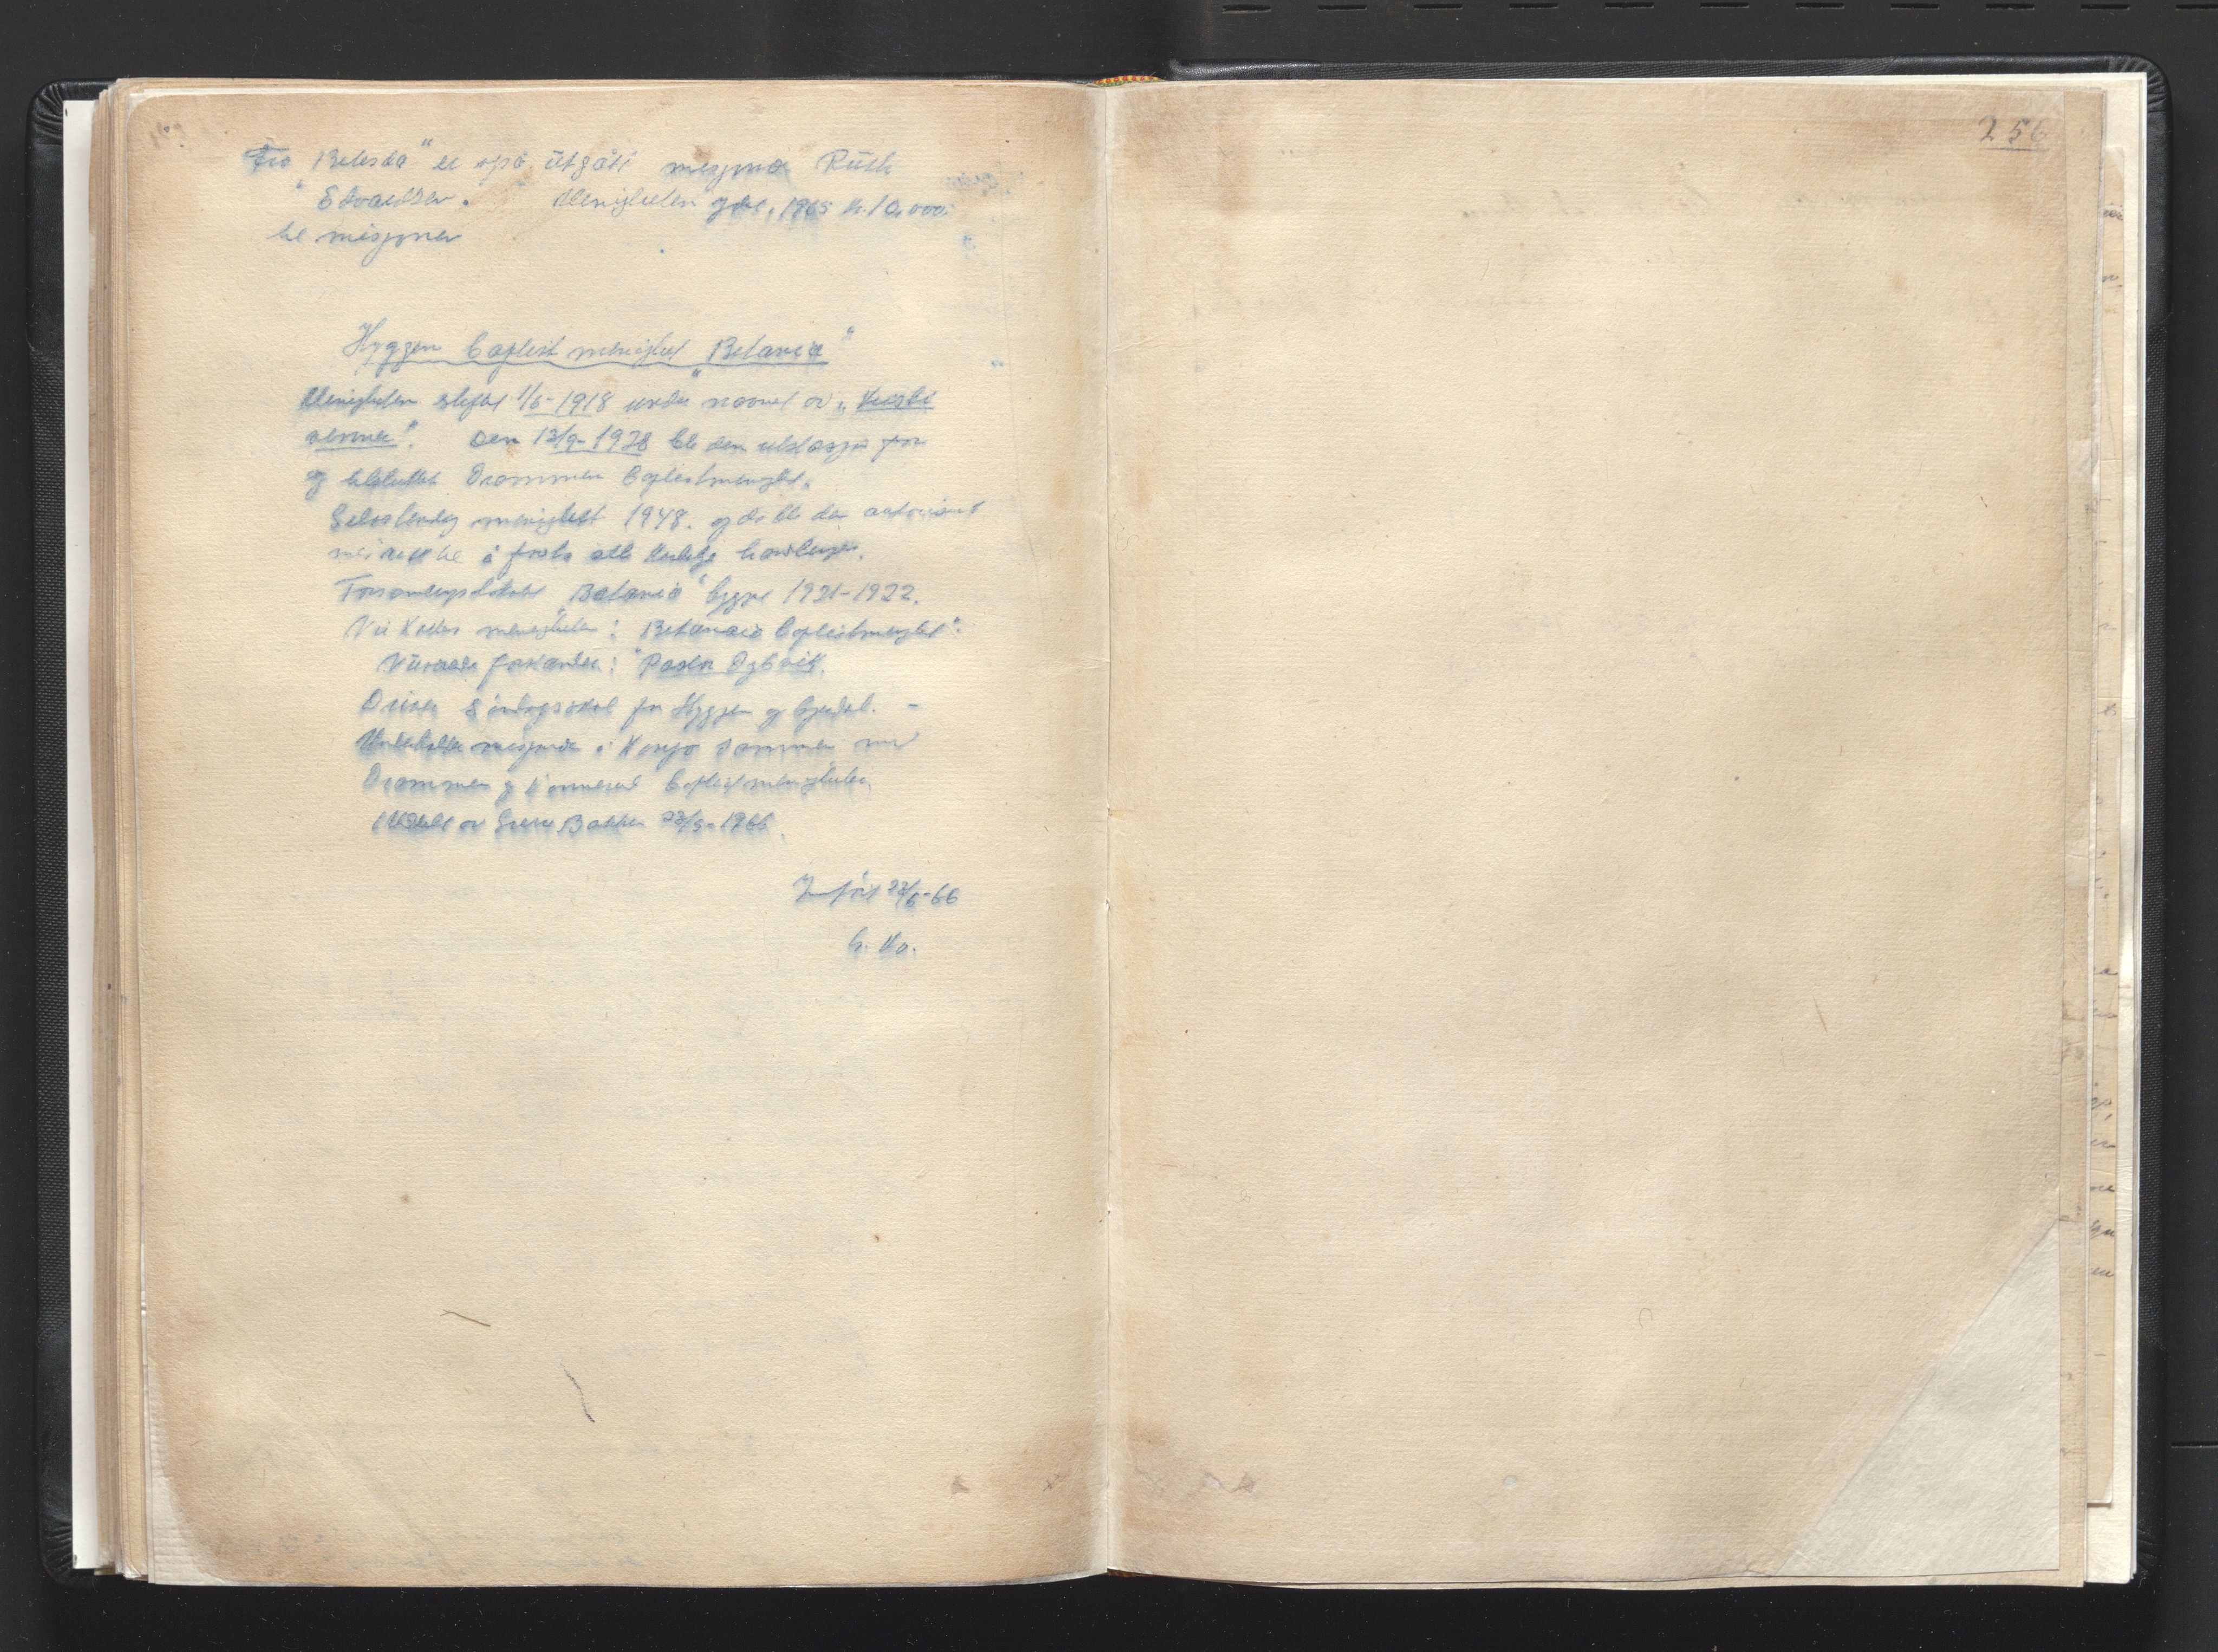 Fra „Betesda" er også ütgått misjonær Rüth
Edvardsen. Menigheten gav i 1965 kr. 10,000
til misjonen
Hyggen baptist menighet „Betania"
Menigheten stiftet 1/6-1918 under navnet av „Kristi
venner". Den 12/9-1928 ble den utstasjon for
og tilsluttet Drammen Baptistmenighet.
Selvstendig menighet 1948. og da ble den autorisert
med rett til å foreta alle kirkelige handlinger.
Forsamlingslokalet „Betania" bygget 1921-1922.
Nü kalles menigheten: „Betania Baptistmenighet".
Nüværende forstander: Pastor Dybvik.
Driver söndagsskol for Hyggen og
Underholder misjonær i Kongo sammen med
Drammen og Baptistmenigheter
Meddelt av Bakken 22/5-1966.
Innfört 22/6-66
256